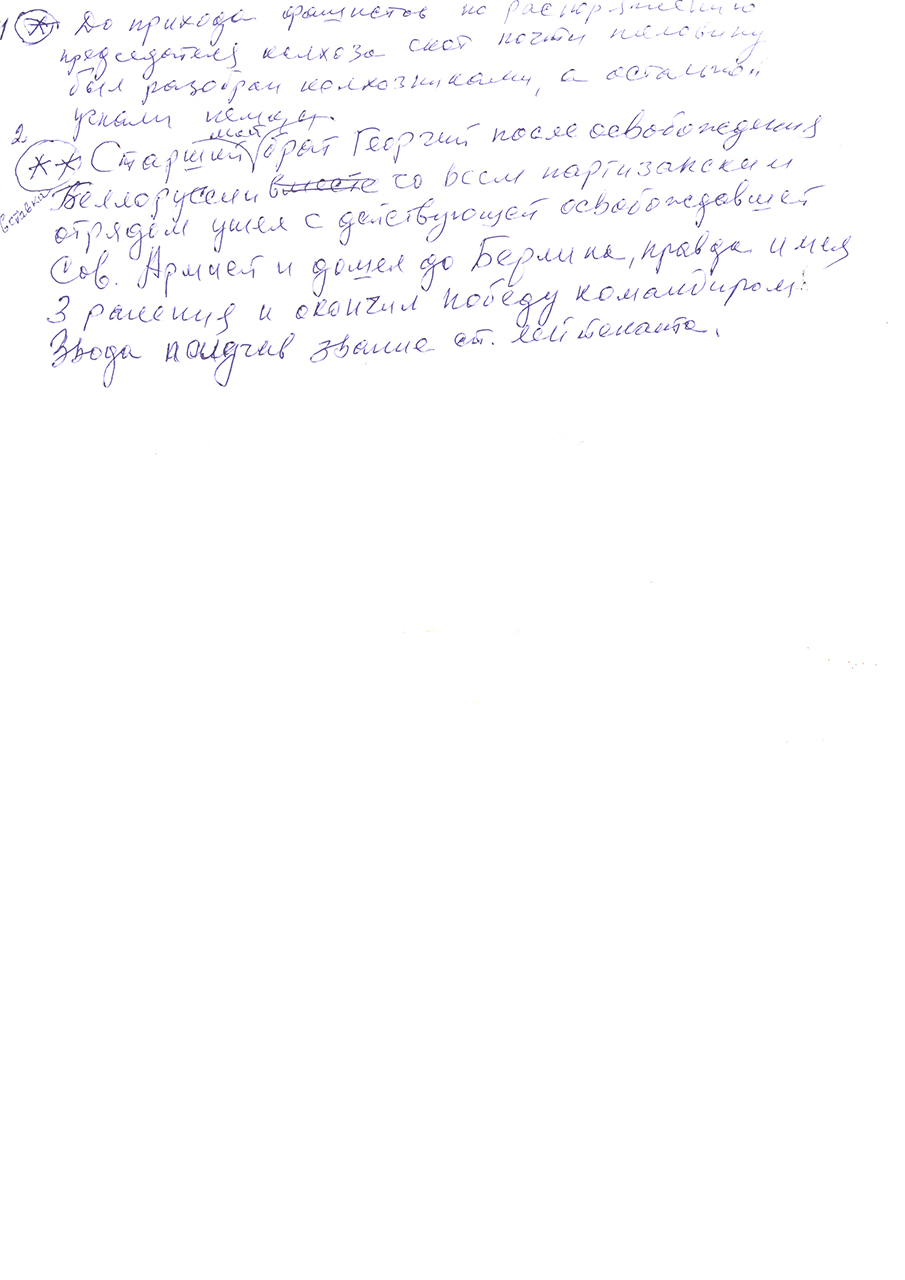 1 * До прихода фашистов по распоряжению
председателя колхоза скот почти половину
был разобран колхозниками, а остальной
угнали немцы.
2 ** Старший мой брат Георгий после освобождения
вставка Беллоруссии вместе со всем партизанским
отрядом ушел с действующей освобождавшей
Сов. Армией и дошел до Берлина, правда имея
3 ранения и окончил победу командиром
Звода получив звание ст. лейтенанта.